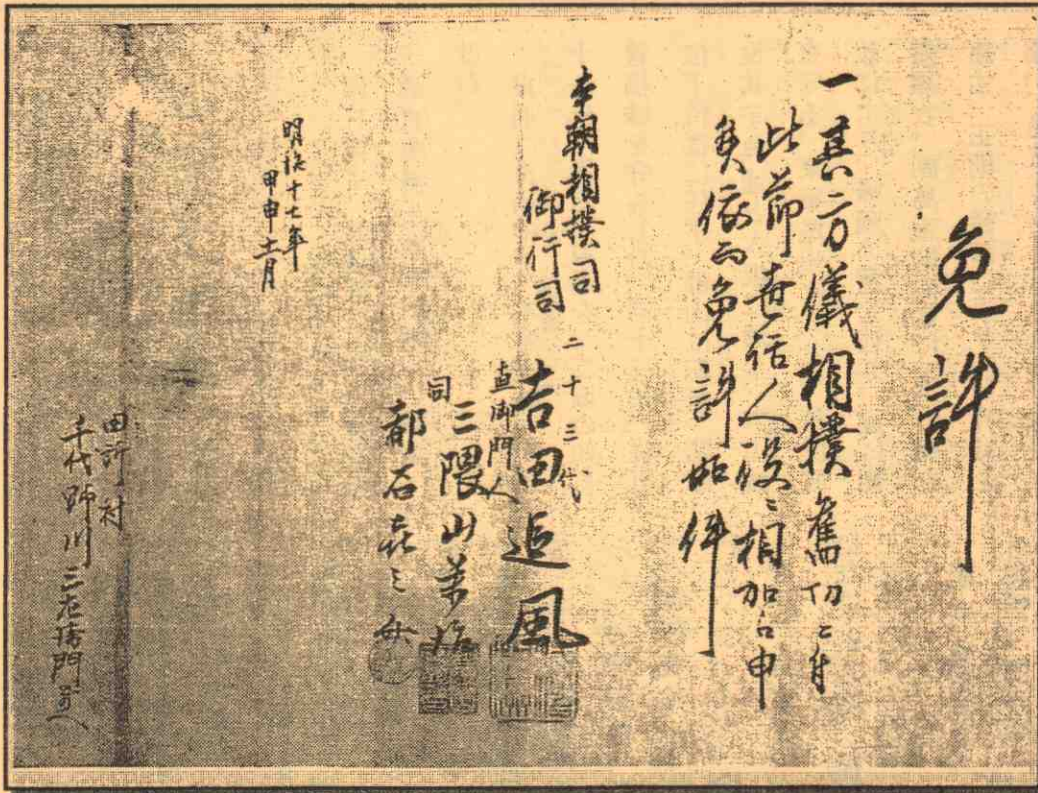 免許
一其二方儀相撲旧切ニ付
此節世話人役ニ相加ヘ申
矣依而免許如件
本朝相撲司
御行司
二十三代
吉田追風
直御門人
三隈山
同
都石森之
明治十七年
甲申十一月
田所村
千代 川三左衛門